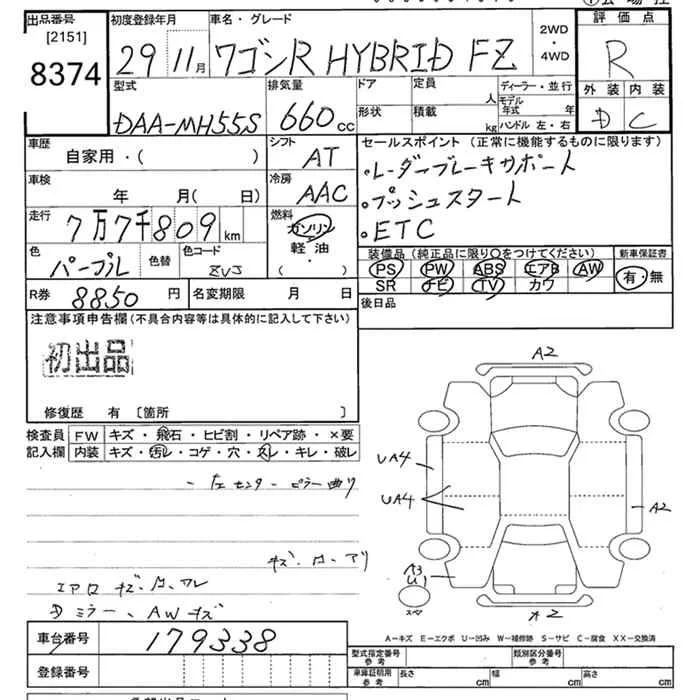 出品番号 初度登録年月 車名・グレード 2WD・4WD 評価点
[2151] 8374 29 11月 ワゴンR HYBRID FZ R
型式 排気量 ドア 定員 人 ディーラー・並行 外装 内装
DAA-MH55S 660cc 形状 積載 kg モデル年式 年 ハンドル 左・右 D C
車歴 シフト セールスポイント (正常に機能するものに限ります)
自家用・( ) AT ・レーダーブレーキサポート
車検 冷房 ・プッシュスタート
年 月(日) AAC ・ETC
走行 7万7千809km 燃料 ガソリン 軽油 ・( )・
装備品 (純正品に限り○をつけてください) 新車保証書
色 パープル 色替 色コード PS PW ABS エアB AW 有・無
SR ナビ TV カワ
R券 8850円 名変期限 月 日 後日品
注意事項申告欄 (不具合内容等は具体的に記入して下さい)
初出品
修復歴 有 [箇所 ]
検査員 FW キズ・飛石・ヒビ割・リペア跡・×要
記入欄 内装 キズ・汚レ・コゲ・穴・スレ・キレ・破レ
A2
UA4
左センターピラー曲り
UA4
A2
A3
U1
エアロ キズ
ミラー、AWキズ
A2
A−キズ E−エクボ U−凹み W−補修跡 S−サビ C−腐食 XX−交換済
車台番号 179338 型式指定番号 参考 類別区分番号 参考
登録番号 車庫証明用 参考 長さ cm 幅 cm 高さ cm